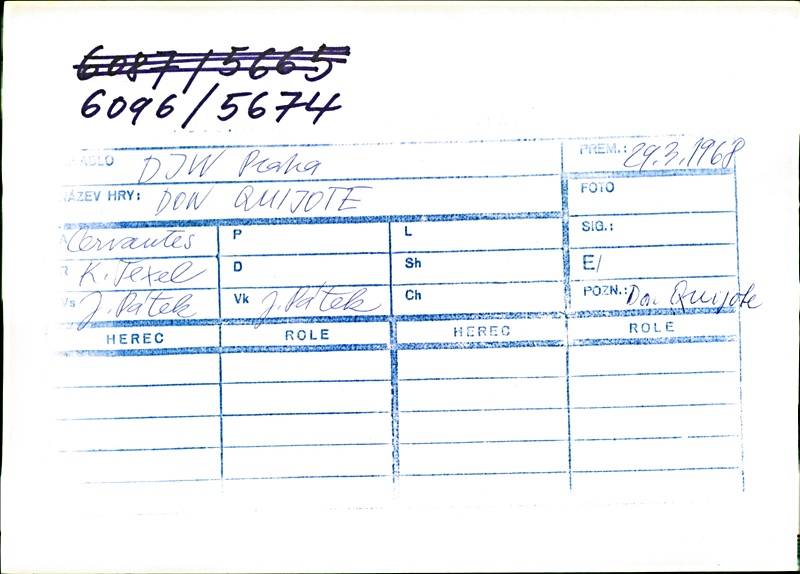 6087/5665
6096/5674
DIVADLO DJW Praha PREM.: 29.3.1968
NÁZEV HRY: DON QUIJOTE FOTO
A Cervantes P L SIG.:
R K. Texel D Sh E/
Vs J. Pátek Vk J. Pátek Ch POZN.: Don Quijote
HEREC ROLE HEREC ROLE